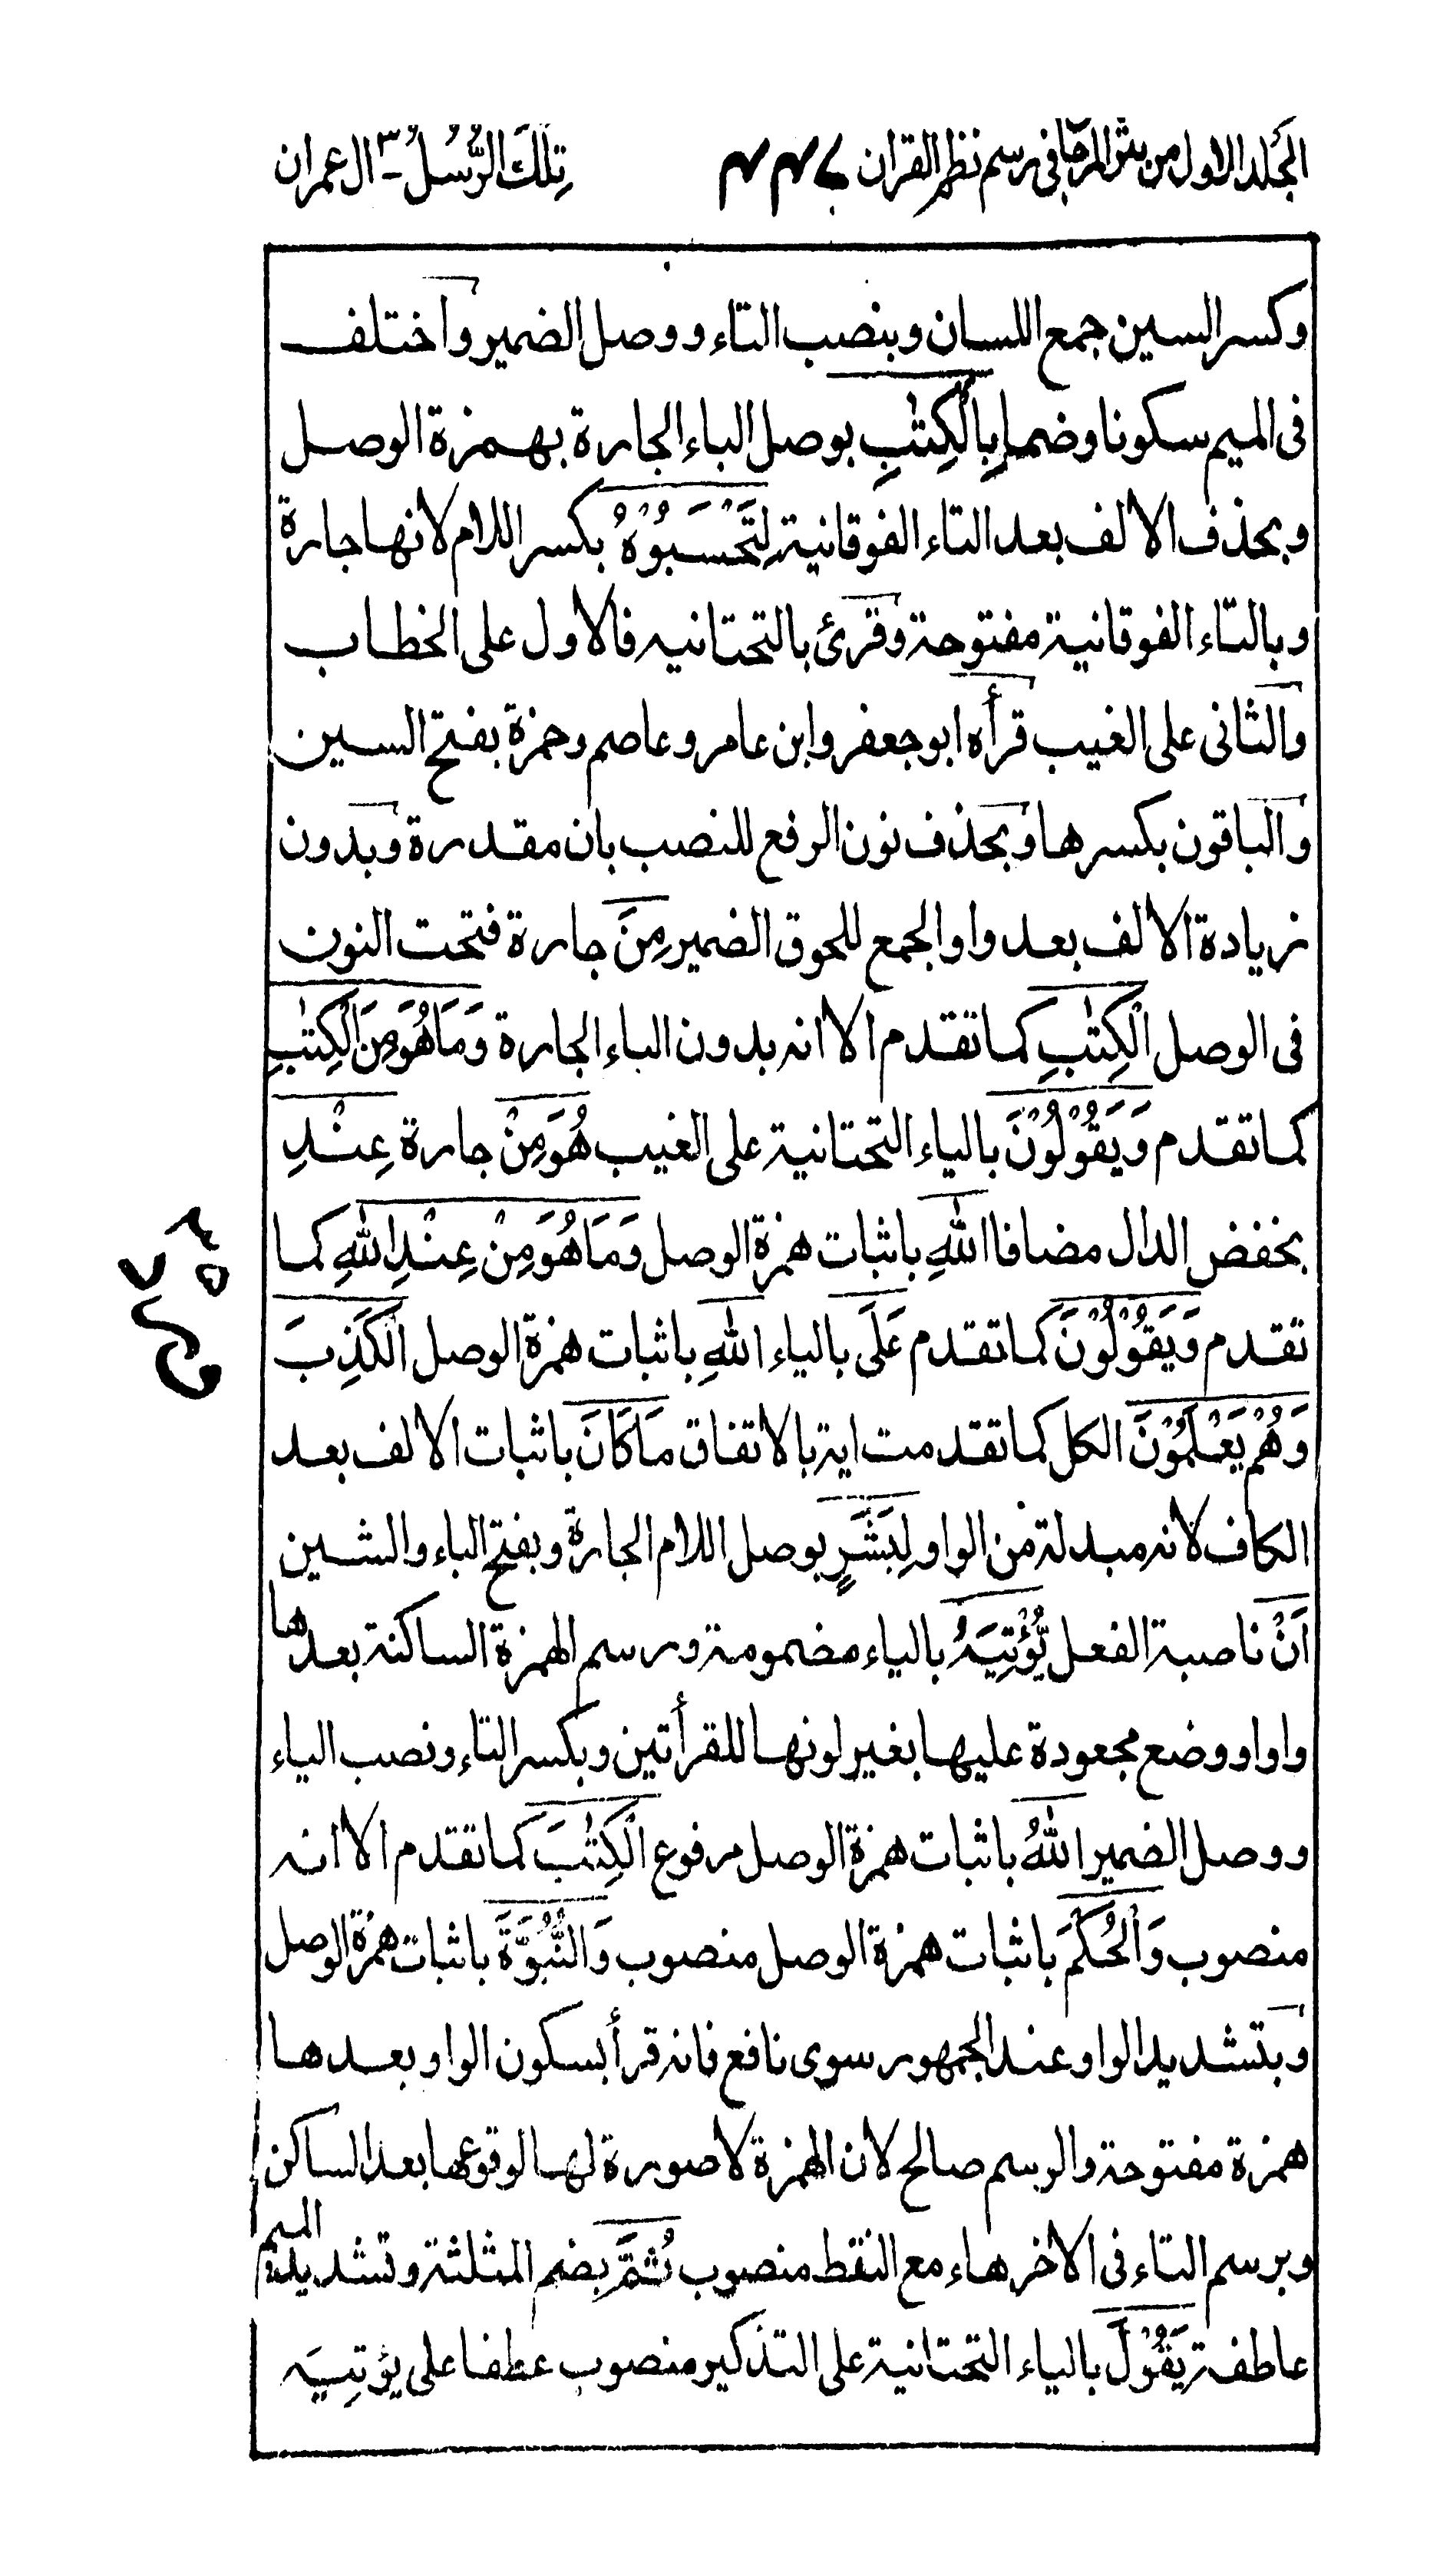 المجلد الاول من نثر المرجان فى رسم نظم القران ٤٤٧ تِلْكَ الرُّسُلُ - ٣ ال عمران
وكسر السين جمع اللسان وبنصب التاء ووصل الضمير واختلف
فى الميم سكونا وضما بِالْكِتٰبِ بوصل الباء الجارة بهمزة الوصل
وبحذف الالف بعد التاء الفوقانية لِتَحْسَبُوْهُ بكسر اللام لانها جارة
وبالتاء الفوقانية مفتوحة وقرئ بالتحتانيه فالاول على الخطاب
والثانى على الغيب قرأه ابو جعفر وابن عامر وعاصم وحمزة بفتح السين
والباقون بكسرها وبحذف نون الرفع للنصب بان مقدرة وبدون
زيادة الالف بعد واو الجمع للحوق الضمير مِنَ جارة فتحت النون
فى الوصل الْكِتٰبِ كما تقدم الا انه بدون الباء الجارة وَمَا هُوَ مِنَ الْكِتٰبِ
كما تقدم وَيَقُوْلُوْنَ بالياء التحتانية على الغيب هُوَ مِنْ جارة عِنْدِ
بخفض الدال مضافا اللّٰهِ باثبات همزة الوصل وَمَا هُوَ مِنْ عِنْدِ اللّٰهِ كما
تقدم وَيَقُوْلُوْنَ كما تقدم عَلَى بالياء اللّٰهِ باثبات همزة الوصل الْكَذِبَ
وَهُمْ يَعْلَمُوْنَ الكل كما تقدمت اية بالاتفاق مَا كَانَ باثبات الالف بعد
الكاف لانه مبدلة من الواو لِبَشَرٍ بوصل اللام الجارة وبفتح الباء والشين
اَنْ ناصبة الفعل يُّؤْتِيَهُ بالياء مضمومة ورسم الهمزة الساكنة بعدها
واوا ووضع مجعودة عليها بغير لونها للقرأتين وبكسر التاء ونصب الياء
ووصل الضمير اللّٰهُ باثبات همزة الوصل مرفوع الْكِتٰبَ كما تقدم الا انه
منصوب وَالْحُكْمَ باثبات همزة الوصل منصوب وَالنُّبُوَّةَ باثبات همزة الوصل
وبتشديد الواو عند الجمهور سوى نافع فانه قرأ بسكون الواو بعدها
همزة مفتوحة والرسم صالح لان الهمزة لا صورة لها لوقوعها بعد الساكن
وبرسم التاء فى الاخر هاء مع النقط منصوب ثُمَّ بضم المثلثة وتشديد الميم
عاطفة يَقُوْلَ بالياء التحتانية على التذكير منصوب عطفا على يؤتِيَه